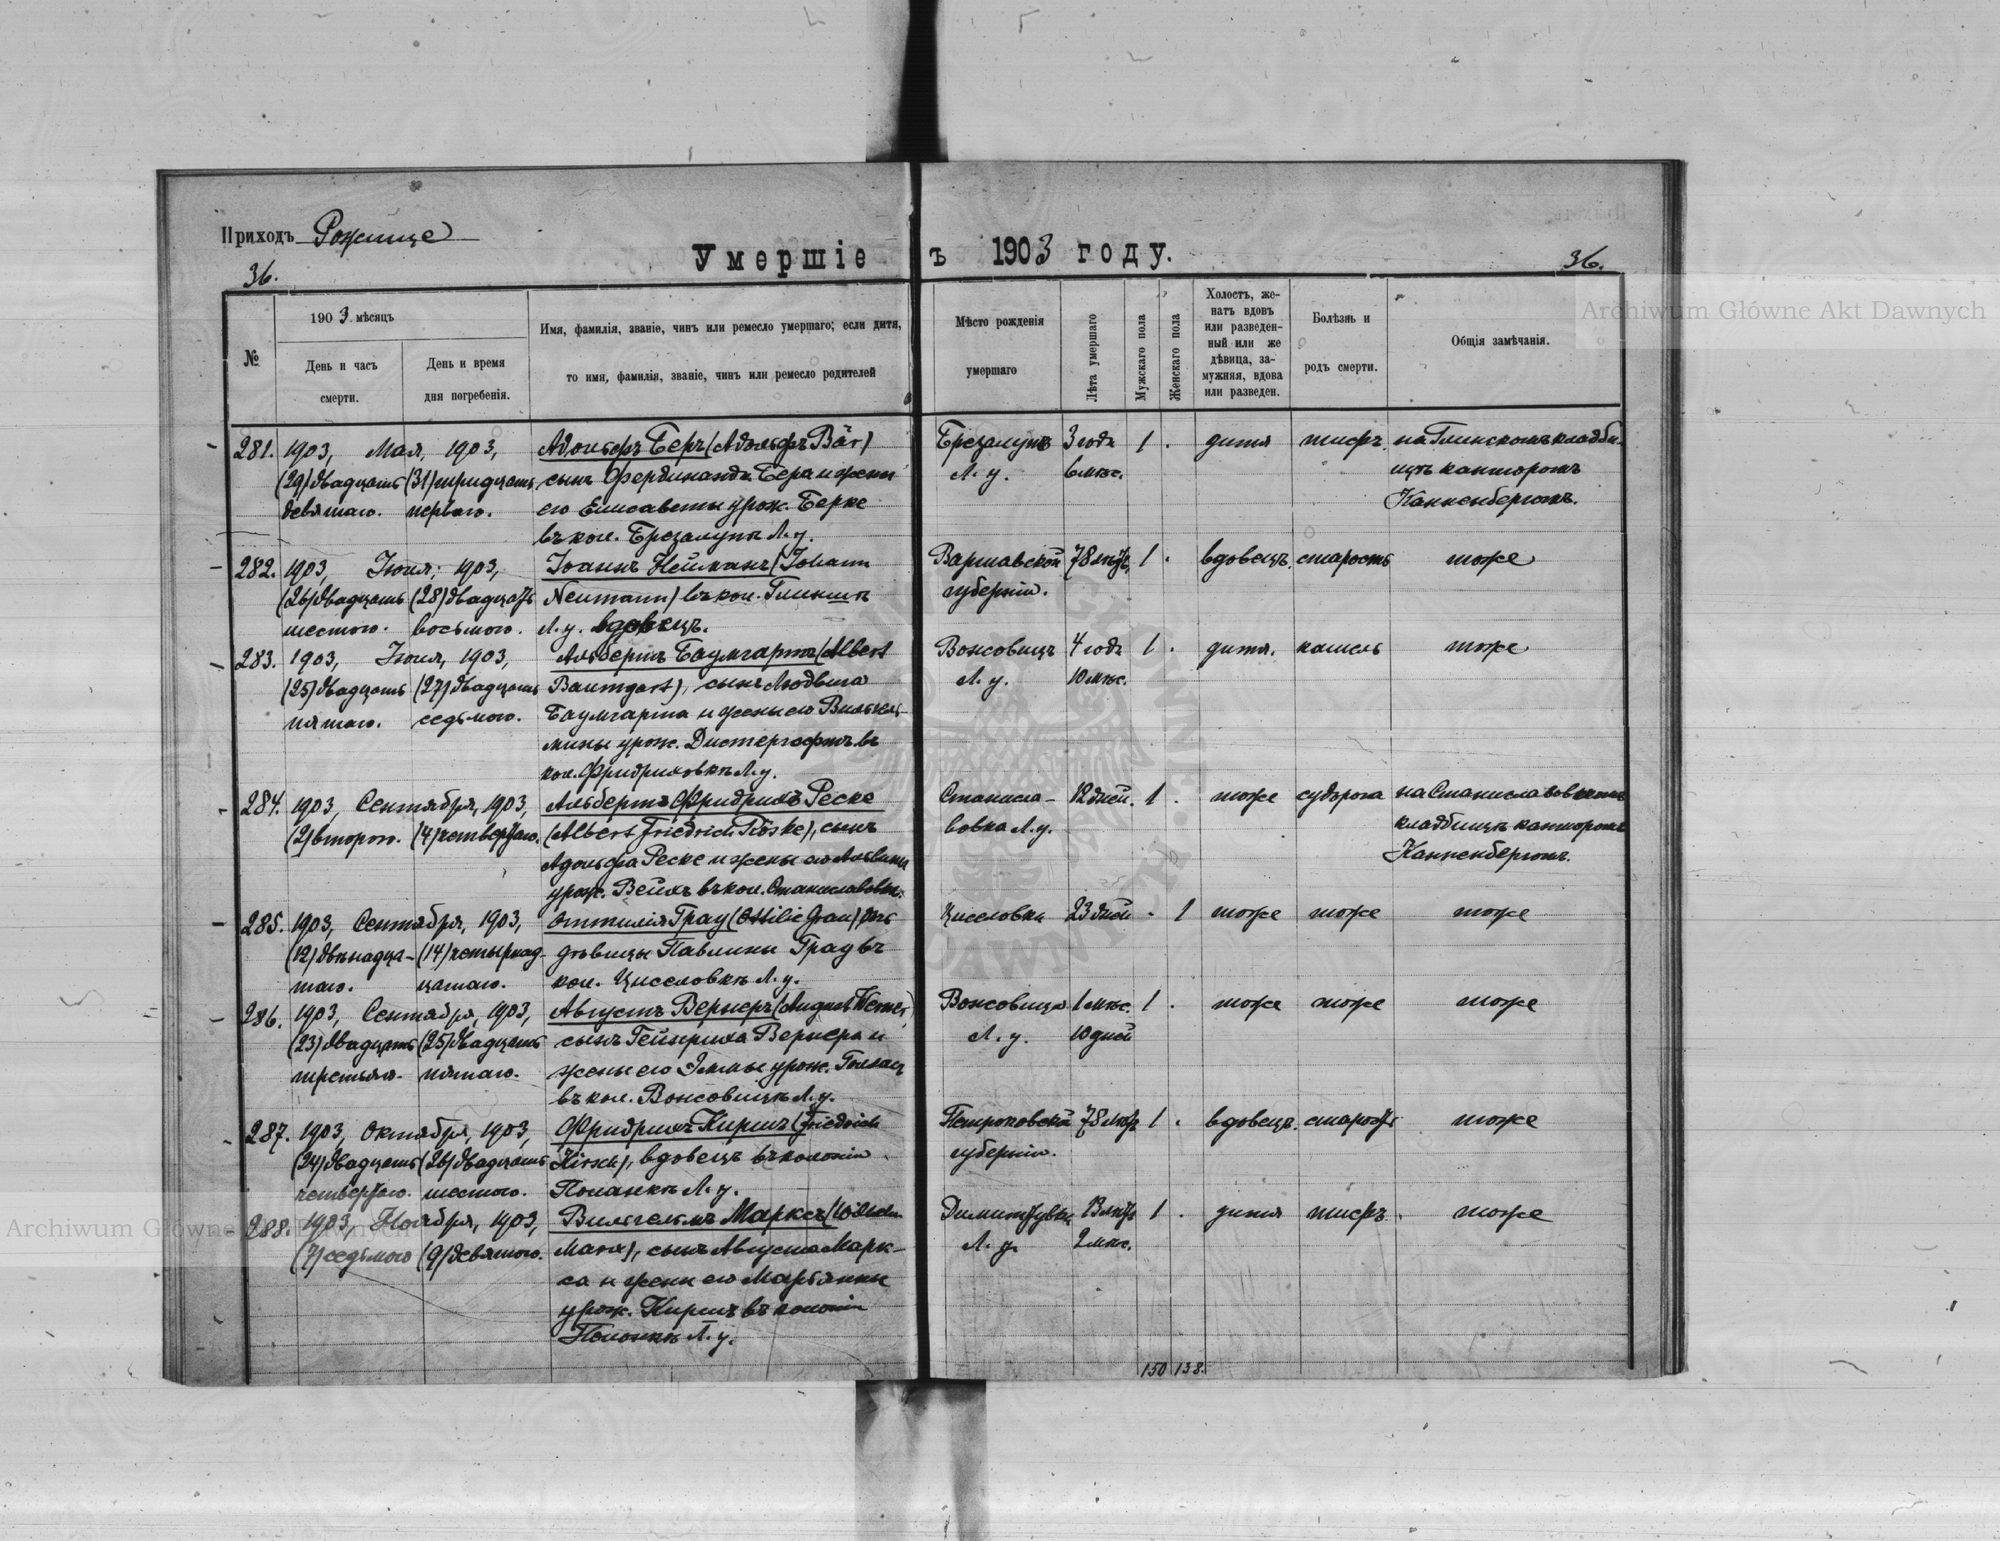 Приходъ Рожище
Умершіе въ 1903 году.
36.
36.
№
1903 мѣсяцъ
День и часъ
смерти.
День и время
дня погребенія.
Имя, фамилія, званіе, чинъ или ремесло умершаго; если дитя,
то имя, фамилія, званіе, чинъ или ремесло родителей
Мѣсто рожденія
умершаго
Лѣта умершаго
Мужскаго пола
Женскаго пола
Холостъ, же-
натъ вдовъ
или разведен-
ный или же
дѣвица, за-
мужняя, вдова
или разведен.
Болѣзнь и
родъ смерти.
Общія замѣчанія.
281. 1903, Мая, 1903, Адольфъ Беръ (Адольфъ Bär) 3 года 1 . дитя тифъ на Глинскомъ кладби-
(29) двадцать (31) тридцать сынъ Фердинанда Бера и жены Л. у. 6 мѣс. щѣ канторомъ
девятаго. перваго. его Елисаветы урож. Берке Канненбергомъ.
въ кол. Брезалупы Л. у.
282. 1903, Іюля, 1903, Іоаннъ Нейманъ (Johann Варшавской 78 лѣтъ, 1 . вдовецъ. старость тоже
(26) двадцать (28) двадцать Neumann) въ кол. Глинищъ губерніи.
шестого. восьмого. Л. у. вдовецъ.
283. 1903, Іюля, 1903, Альбертъ Баумгартъ (Albert Вонсовичъ 4 года 1 . дитя. кашель тоже
(25) двадцать (27) двадцать Baumgart), сынъ Людвига Л. у. 10 мѣс.
пятаго. седьмого. Баумгарта и жены его Вильгель-
мины урож. Дистергофтъ въ
кол. Фридриховкѣ Л. у.
284. 1903, Сентября, 1903, Альбертъ Фридрихъ Реске Станисла- 12 дней. 1 . тоже судорога на Станиславовскомъ
(2) второго. (4) четвертаго. (Albert Friedrich Röske), сынъ вовка Л. у. кладбищѣ канторомъ
Адольфа Реске и жены его Альвины Канненбергомъ.
урож. Вейхъ въ кол. Станиславовкѣ.
285. 1903, Сентября, 1903, Оттилія Грау (Ottilie Grau) отъ 23 дней . 1 тоже тоже тоже
(12) двѣнадца- (14) четырнад- дѣвицы Павлины Грау въ
таго. цатаго. кол. Циселовкѣ Л. у.
286. 1903, Сентября, 1903, Августъ Вернеръ (August Werner) 1 мѣс. 1 . тоже тоже тоже
(23) двадцать (25) двадцать сынъ Гейнриха Вернера и Л. у. 10 дней
третьяго. пятаго. жены его Эммы урож.
въ кол. Вонсовичъ Л. у.
287. 1903, Октября, 1903, Фридрихъ Киршъ (Friedrich Петроковской 78 лѣтъ 1 . вдовецъ. старость тоже
(24) двадцать (26) двадцать Kirsch), вдовецъ въ колоніи губерніи.
четвертаго. шестого. Поланкѣ Л. у.
288. 1903, Ноября, 1903, Вильгельмъ Марксъ (Wilhelm 13 лѣтъ 1 . дитя тифъ. тоже
(7) седьмого (9) девятого. Marx), сынъ Августа Марк- Л. у. 2 мѣс.
са и жены его Марьянны
урож. Киршъ въ колоніи
Полонкѣ Л. у.
150 138.
Archiwum Główne Akt Dawnych